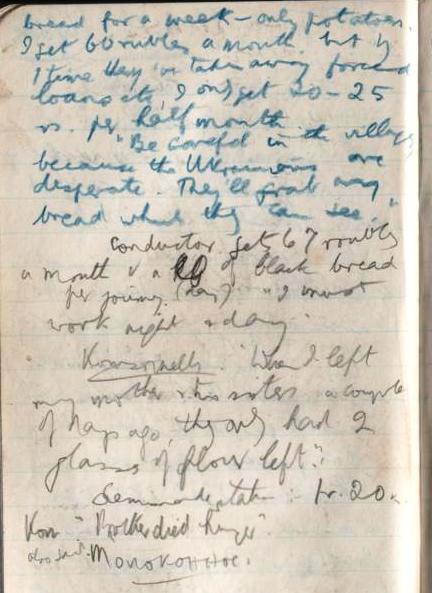 bread for a week – only potatoes.
I get 60 rubles a month, but by
time they've taken away forced
loans etc, I only get 20-25
rs. per half month
"Be careful in the village
because the Ukrainians are
desperate. They'll grab any
bread which they can see."
Conductor gets 67 roubles
a month & a of black bread
per journey (day) "I must
work night & day.
Komsomolets. "When I left
my mother & two sisters a couple
of days ago, they only had 2
glasses of flour left."
20
Kom "Brother died hunger".
also said